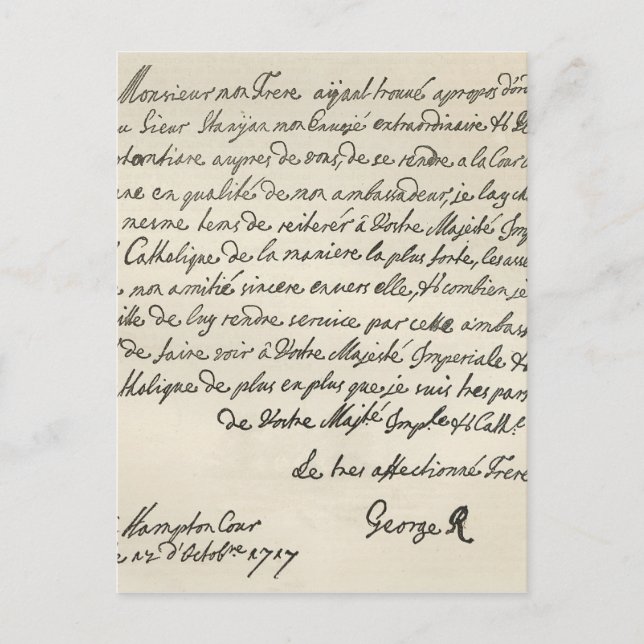 Monsieur mon Frere aÿant trouvé apropos d'or
u Sieur Stanÿan mon Envojé extraordinaire & Pl
potentiare aupres de vous, de se rendre a la Cour
nne en qualité de mon ambassadeur, je lay ch
mesme tems de reiterér â Vostre Majesté Imp
Catholique de la maniere la plus forte, les asse
mon amitié sincere envers elle, & combien je
ille de luy rendre service par cette ambass
de faire voir â Vostre Majesté Imperiale &
tholique de plus en plus que je suis tres parf
de Vostre Majté Imple & Cathe
Le tres affectionné Frere
George R
Hampton Cour
e 12 d'Octobre 1717